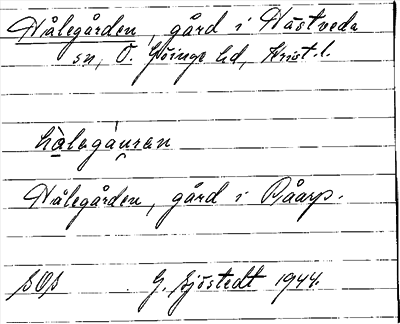 Hålegården, gård i Hästveda
sn, Ö. Göinge hd, Krist. l.
Hålegården, gård i Båarp.
SOS G. Sjöstedt 1944.